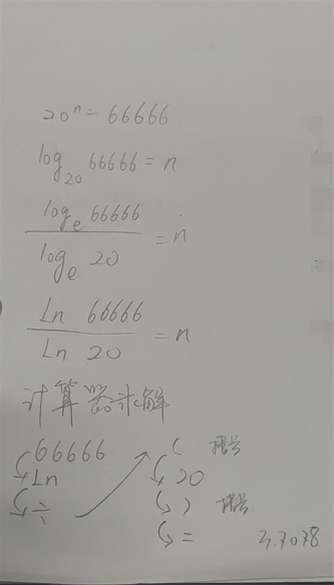 20ⁿ = 66666
log₂₀ 66666 = n
logₑ 66666 / logₑ 20 = n
Ln 66666 / Ln 20 = n
计算器求解
66666
Ln
÷
( 括号
20
) 括号
= 3.7078